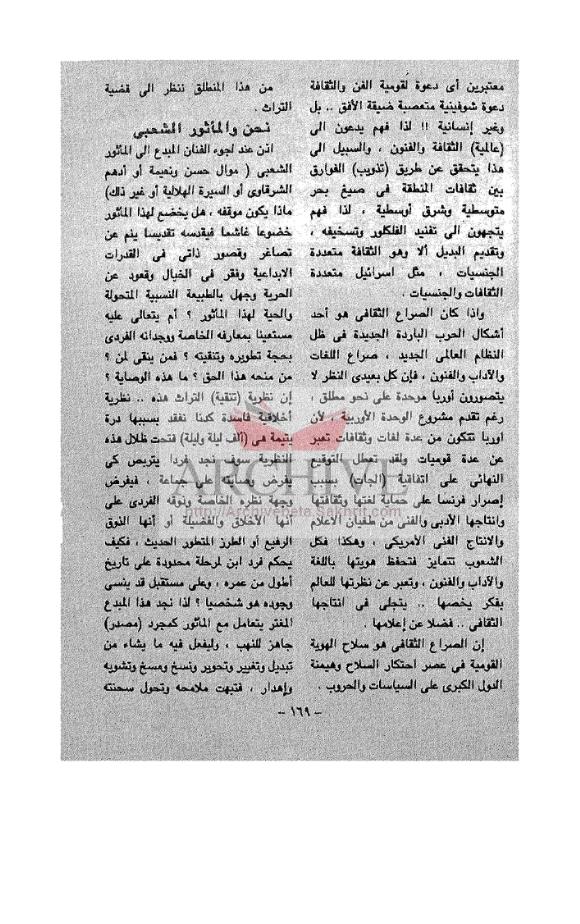 معتبرين أى دعوة لقومية الفن والثقافة
دعوة شوفينية متعصبة ضيقة الأفق .. بل
وغير إنسانية !! لذا فهم يدعون الى
(عالمية) الثقافة والفنون ، والسبيل الى
هذا يتحقق عن طريق (تذويب) الفوارق
بين ثقافات المنطقة فى صيغ بحر
متوسطية وشرق أوسطية ، لذا فهم
يتجهون الى تفنيد الفلكلور وتسخيفه ،
وتقديم البديل ألا وهو الثقافة متعددة
الجنسيات ، مثل اسرائيل متعددة
الثقافات والجنسيات .
واذا كان الصراع الثقافى هو أحد
أشكال الحرب الباردة الجديدة فى ظل
النظام العالمى الجديد ، صراع اللغات
والآداب والفنون ، فإن كل بعيدى النظر لا
يتصورون أوربا موحدة على نحو مطلق ،
رغم تقدم مشروع الوحدة الأوربية ، لأن
اوربا تتكون من عدة لغات وثقافات تعبر
عن عدة قوميات ولقد تعطل التوقيع
النهائى على اتفاقية (الجات) بسبب
إصرار فرنسا على حماية لغتها وثقافتها
وانتاجها الأدبى والفنى من طغيان الاعلام
والانتاج الفنى الأمريكى ، وهكذا فكل
الشعوب تتمايز فتحفظ هويتها باللغة
والآداب والفنون ، وتعبر عن نظرتها للعالم
بفكر يخصها .. يتجلى فى انتاجها
الثقافى .. فضلا عن إعلامها .
إن الصراع الثقافى هو سلاح الهوية
القومية فى عصر احتكار السلاح وهيمنة
الدول الكبرى على السياسات والحروب .
من هذا المنطلق ننظر الى قضية
التراث .
نحن والمأثور الشعبى
اذن عند لجوء الفنان المبدع الى المأثور
الشعبى ( موال حسن ونعيمة أو أدهم
الشرقاوى أو السيرة الهلالية أو غير ذلك)
ماذا يكون موقفه ، هل يخضع لهذا المأثور
خضوعا غاشما فيقدسه تقديسا ينم عن
تصاغر وقصور ذاتى فى القدرات
الابداعية وفقر فى الخيال وقعود عن
الحرية وجهل بالطبيعة النسبية المتحولة
والحية لهذا المأثور ؟ أم يتعالى عليه
مستعينا بمعارفه الخاصة ووجدانه الفردى
بحجة تطويره وتنقيته ؟ فمن ينقى لمن ؟
من منحه هذا الحق ؟ ما هذه الوصاية ؟
إن نظرية (تنقية) التراث هذه .. نظرية
أخلاقية فاسدة كدنا نفقد بسببها درة
يتيمة هى (ألف ليلة وليلة) فتحت ظلال هذه
النظرية سوف نجد فردا يتربص كى
يفرض وصايته على جماعة ، فيفرض
وجهة نظره الخاصة وذوقه الفردى على
أنها الأخلاق والفضيلة أو أنها الذوق
الرفيع أو الطرز المتطور الحديث ، فكيف
يحكم فرد ابن لمرحلة محدودة على تاريخ
أطول من عمره ، وعلى مستقبل قد ينسى
وجوده هو شخصيا ؟ لذا نجد هذا المبدع
المغتر يتعامل مع المأثور كمجرد (مصدر)
جاهز للنهب ، وليفعل فيه ما يشاء من
تبديل وتغيير وتحوير ونسخ ومسخ وتشويه
وإهدار ، فتبهت ملامحه وتحول سحنته
– ١٦٩ –
ARCHIVE
http://Archivebeta.Sakhrit.com